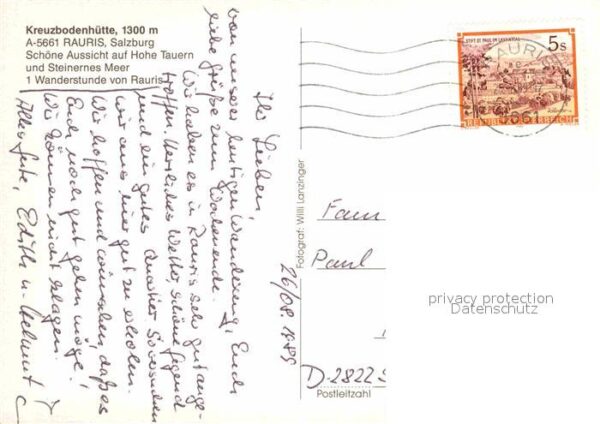 Kreuzbodenhütte, 1300 m
A-5661 RAURIS, Salzburg
Schöne Aussicht auf Hohe Tauern
und Steinernes Meer
1 Wanderstunde von Rauris
26/08. 1989
Ihr Lieben,
von unserer heutigen Wanderung, Euch
liebe Grüße zum Wochenende.
Wir haben es in Rauris sehr gut ange-
troffen. Herrliches Wetter, schöne Gegend
und ein gutes Quartier. So versuchen
wir uns hier gut zu erholen.
Wir hoffen und wünschen, daß es
Euch noch gut gehen möge!
Wir können nicht klagen.
Alles Gute, Edith u. Helmut
Fotograf: Willi Lanzinger
STIFT ST. PAUL IM LAVANTTAL
5s
REPUBLIK ÖSTERREICH
RAURIS
5661
Fam
Paul
D-2822
Postleitzahl
privacy protection
Datenschutz